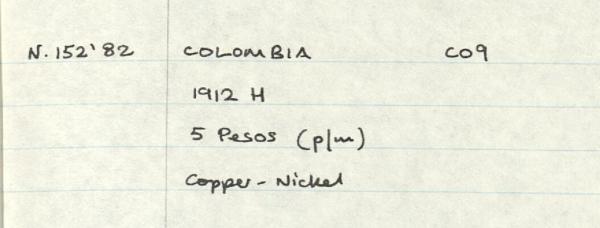 N. 152'82 COLOMBIA C09
1912 H
5 Pesos (p/m)
Copper - Nickel